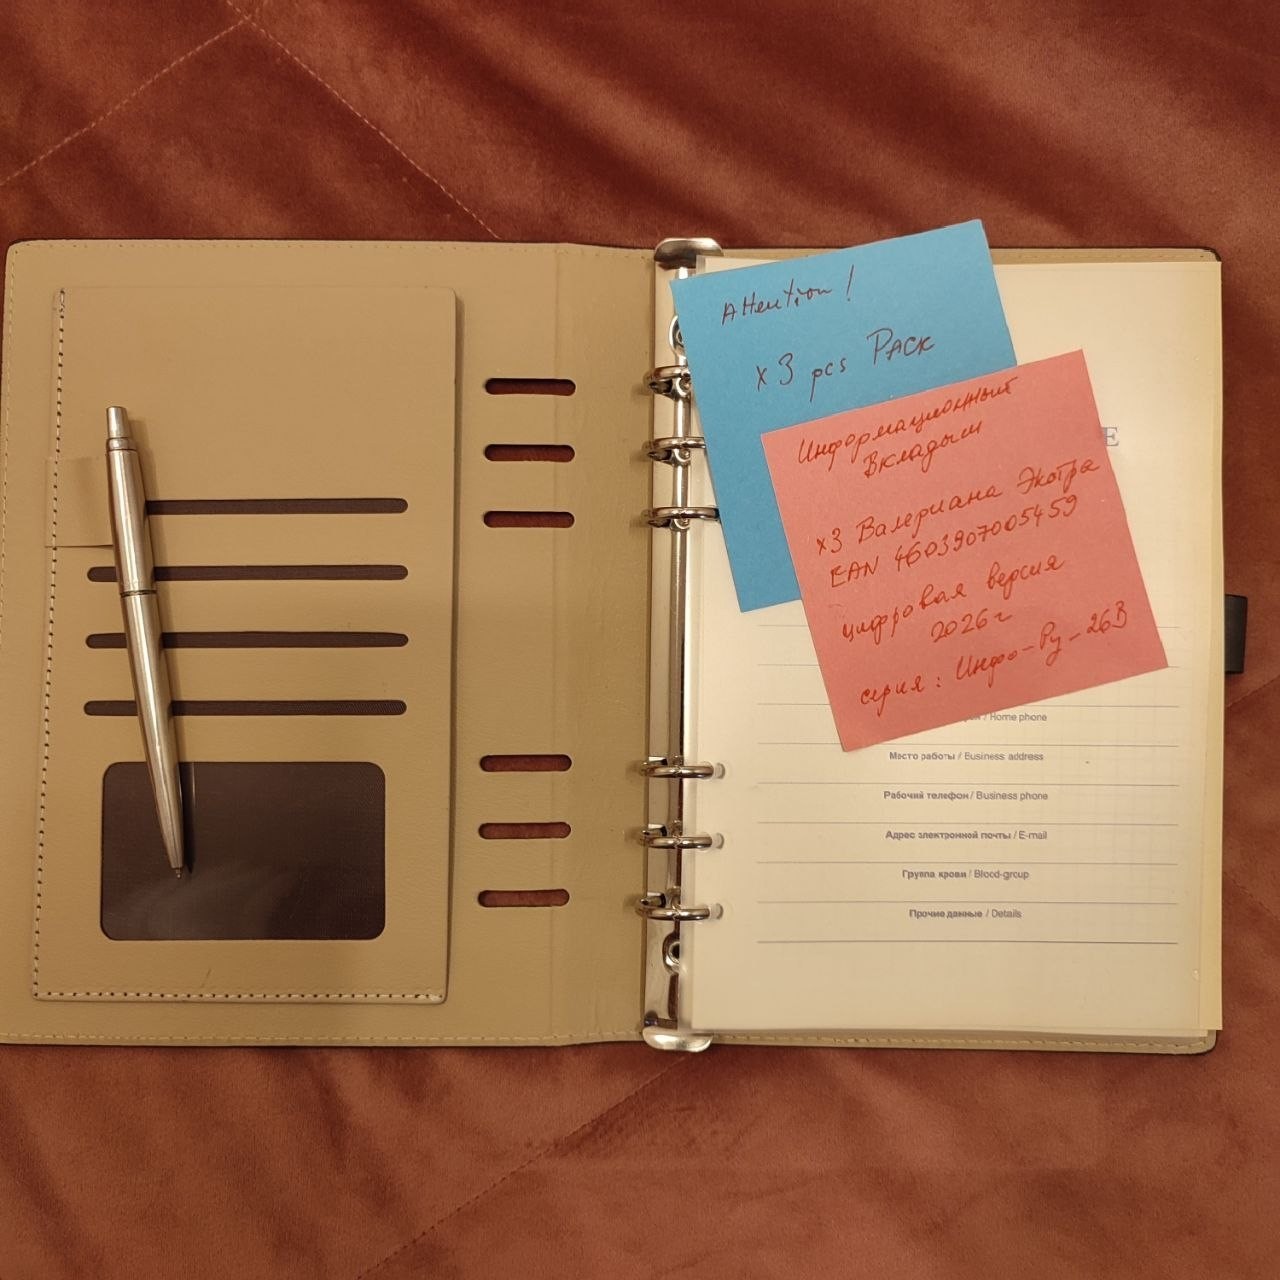 Attention!
x 3 pcs PACK
Информационный
Вкладыш
x3 Валериана Экстра
EAN 4603907005459
цифровая версия
2026г
серия: Инфо-Ру-26В
Е
/ Home phone
Место работы / Business address
Рабочий телефон / Business phone
Адрес электронной почты / E-mail
Группа крови / Blood-group
Прочие данные / Details